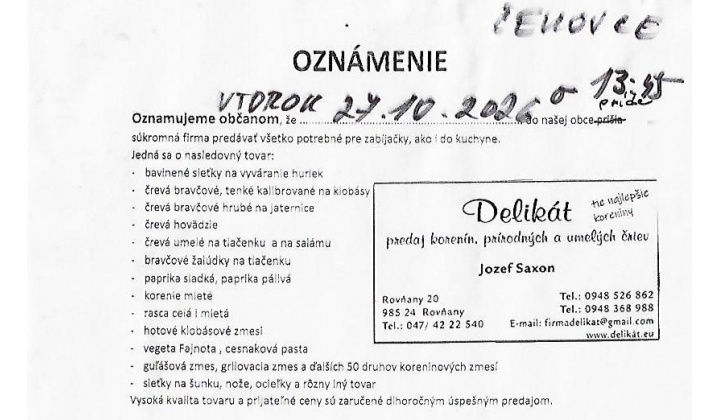 ČEHOVCE
OZNÁMENIE
VTOROK 27.10.2026 o 13:45
príde
Oznamujeme občanom, že ........................ do našej obce prišla
súkromná firma predávať všetko potrebné pre zabíjačky, ako i do kuchyne.
Jedná sa o nasledovný tovar:
- bavlnené sieťky na vyváranie huriek
- črevá bravčové, tenké kalibrované na klobásy
- črevá bravčové hrubé na jaternice
- črevá hovädzie
- črevá umelé na tlačenku a na salámu
- bravčové žalúdky na tlačenku
- paprika sladká, paprika pálivá
- korenie mleté
- rasca celá i mletá
- hotové klobásové zmesi
- vegeta Fajnota , cesnaková pasta
- gulášová zmes, grilovacia zmes a ďalších 50 druhov koreninových zmesí
- sieťky na šunku, nože, ocieľky a rôzny iný tovar
Vysoká kvalita tovaru a prijateľné ceny sú zaručené dlhoročným úspešným predajom.
Delikát
tie najlepšie
koreniny
predaj korenín, prírodných a umelých čriev
Jozef Saxon
Rovňany 20
985 24 Rovňany
Tel.: 047/ 42 22 540
Tel.: 0948 526 862
Tel.: 0948 368 988
E-mail: firmadelikat@gmail.com
www.delikát.eu